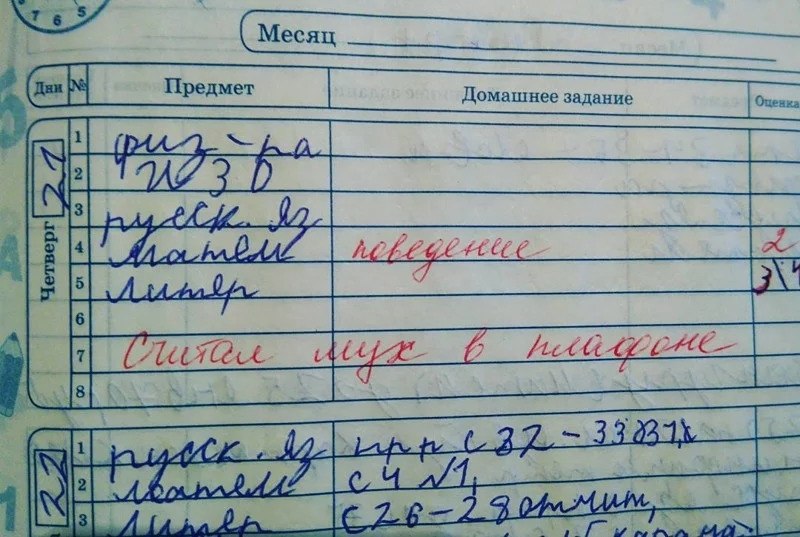 7 6 5
Месяц
Дни № Предмет Домашнее задание Оценка
Четверг 21
1 физ-ра
2 ИЗО
3 русск. яз
4 матем поведение 2
5 литер 3\4
6
7 Считал мух в плафоне
8
22
1 русск. яз
2 матем с 4 №1,
3 литер с 26-28